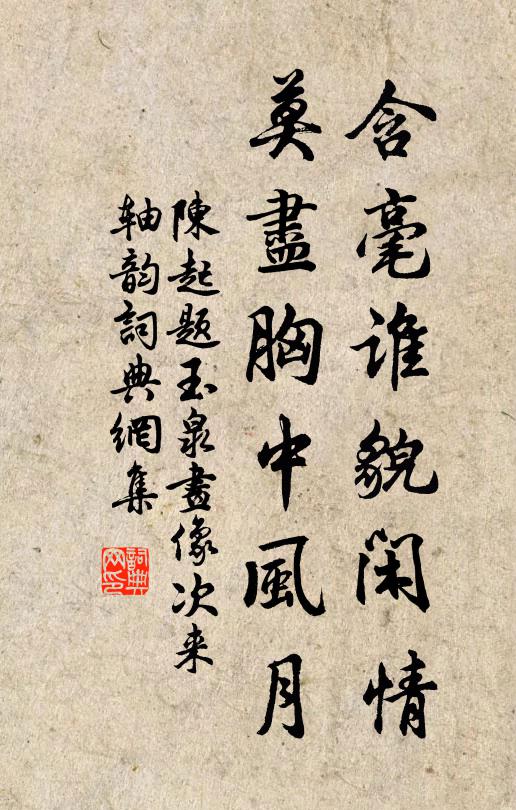 含毫谁貌闲情
莫盡胸中風月
陳起题玉泉畫像次来
軸韵詞典網集
詞典网印